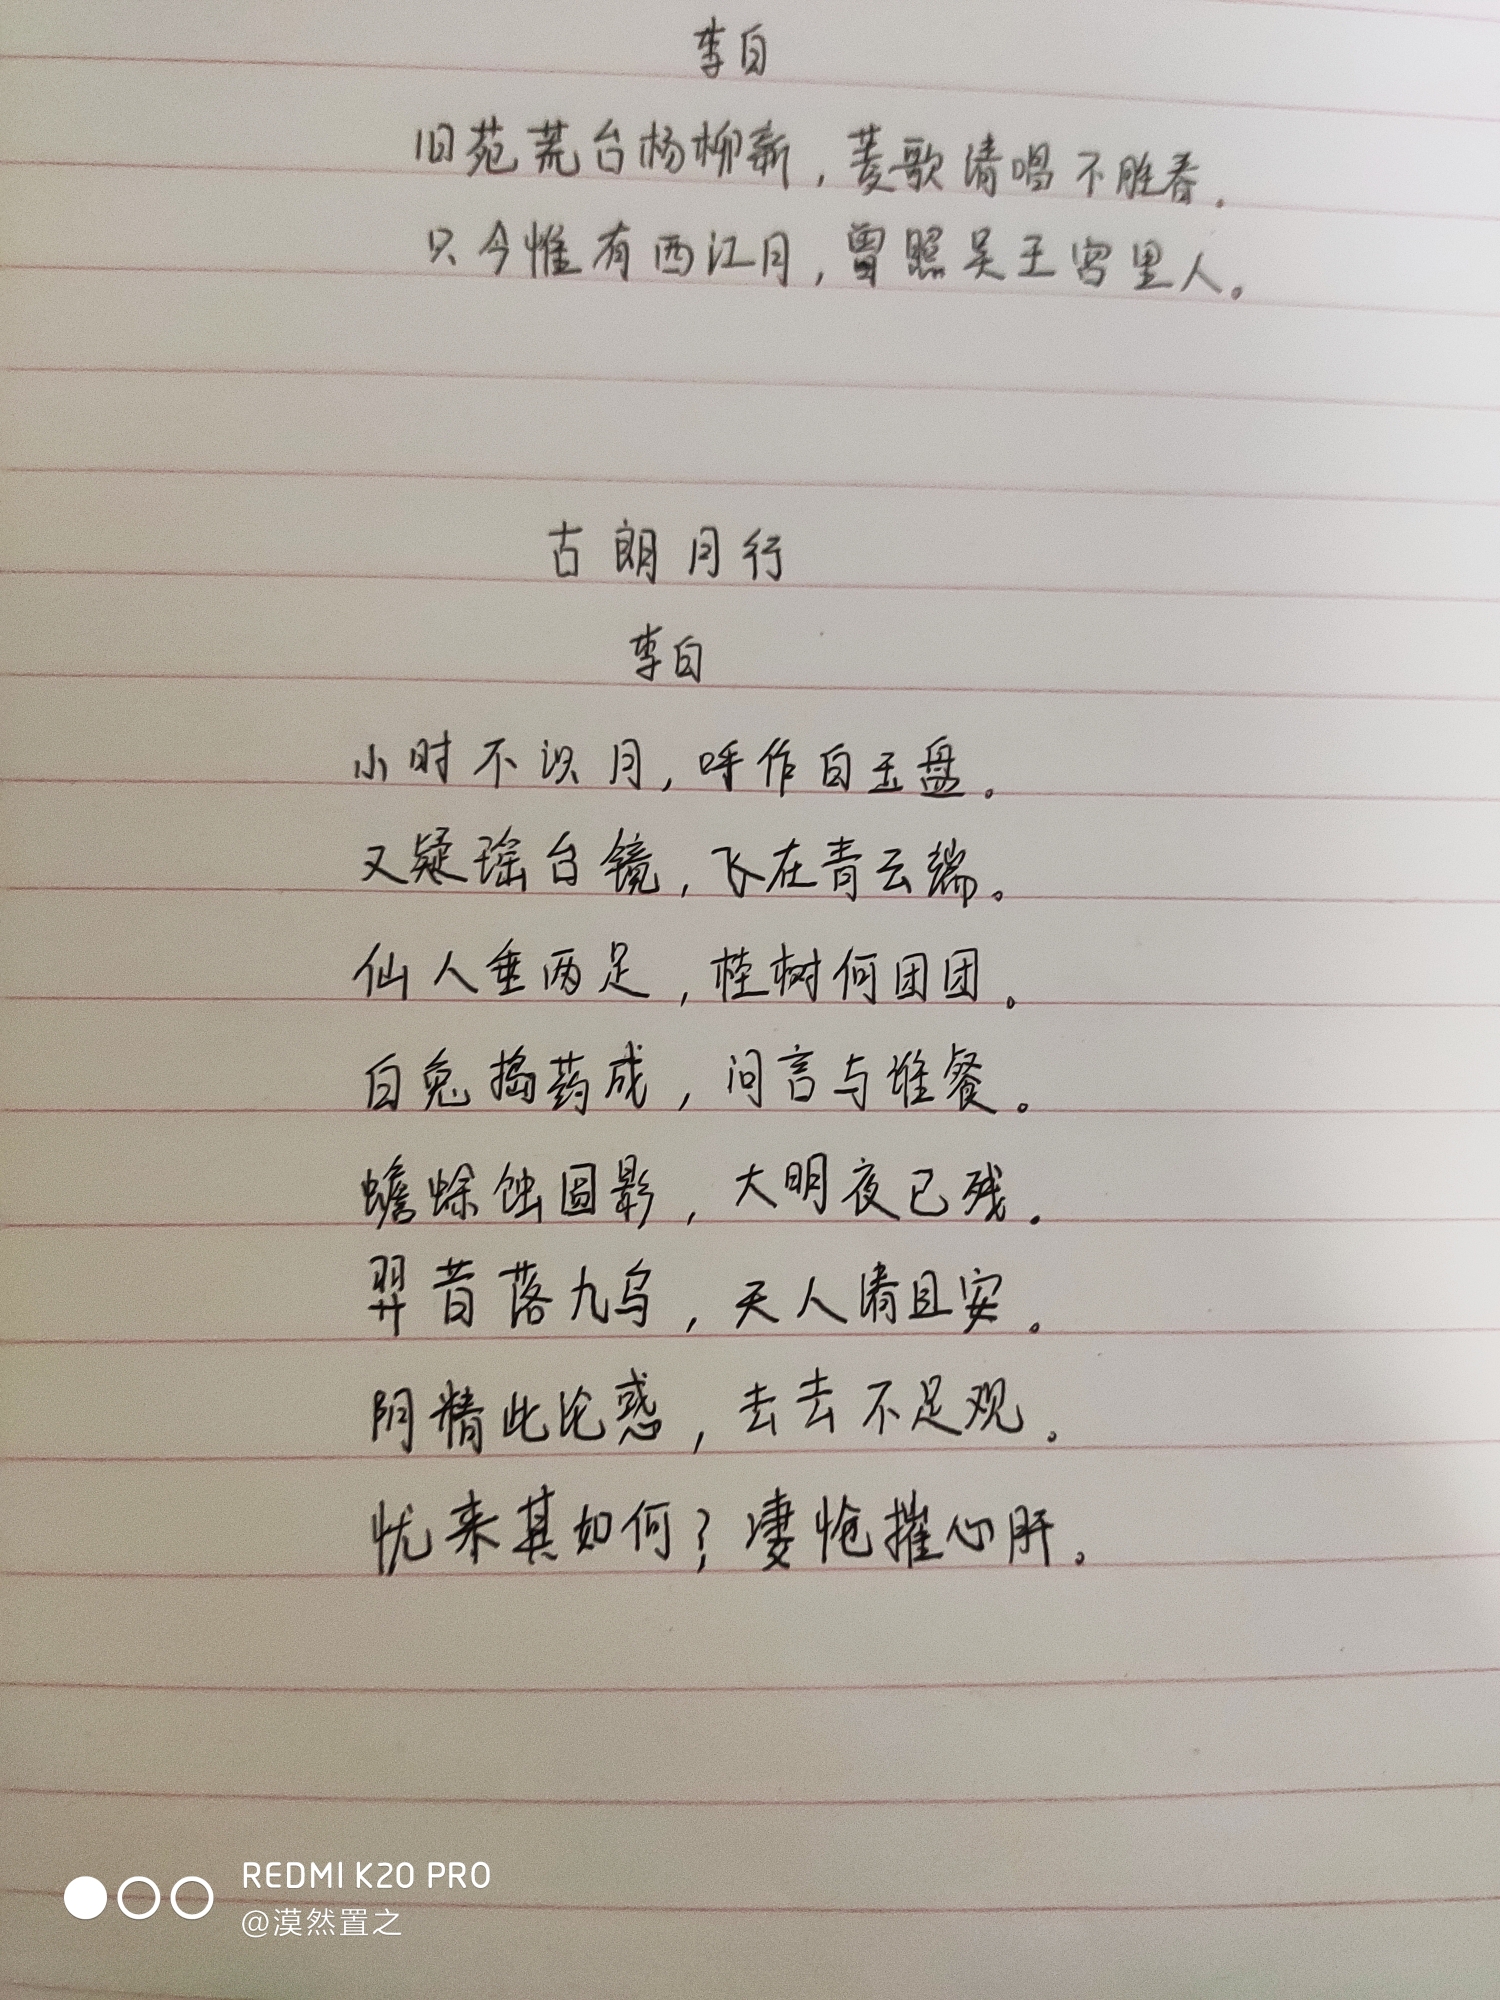 李白
旧苑荒台杨柳新，菱歌清唱不胜春.
只今惟有西江月，曾照吴王宫里人。
古朗月行
李白
小时不识月，呼作白玉盘。
又疑瑶台镜，飞在青云端。
仙人垂两足，桂树何团团。
白兔捣药成，问言与谁餐。
蟾蜍蚀圆影，大明夜已残.
羿昔落九乌，天人清且安.
阴精此沦惑，去去不足观。
忧来其如何？凄怆摧心肝。
REDMI K20 PRO
@漠然置之